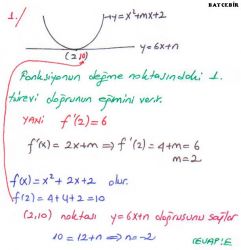 BATCEBİR
1./
y=x²+mx+2
y=6x+n
(2,10)
Fonksiyonun değme noktasındaki 1.
türevi doğrunun eğimini verir.
YANİ f'(2)=6
f'(x)=2x+m ⇒ f'(2)=4+m=6
m=2
f(x)=x²+2x+2 olur.
f(2)=4+4+2=10
(2,10) noktası y=6x+n doğrusunu sağlar
10=12+n ⇒ n=-2
CEVAP:E